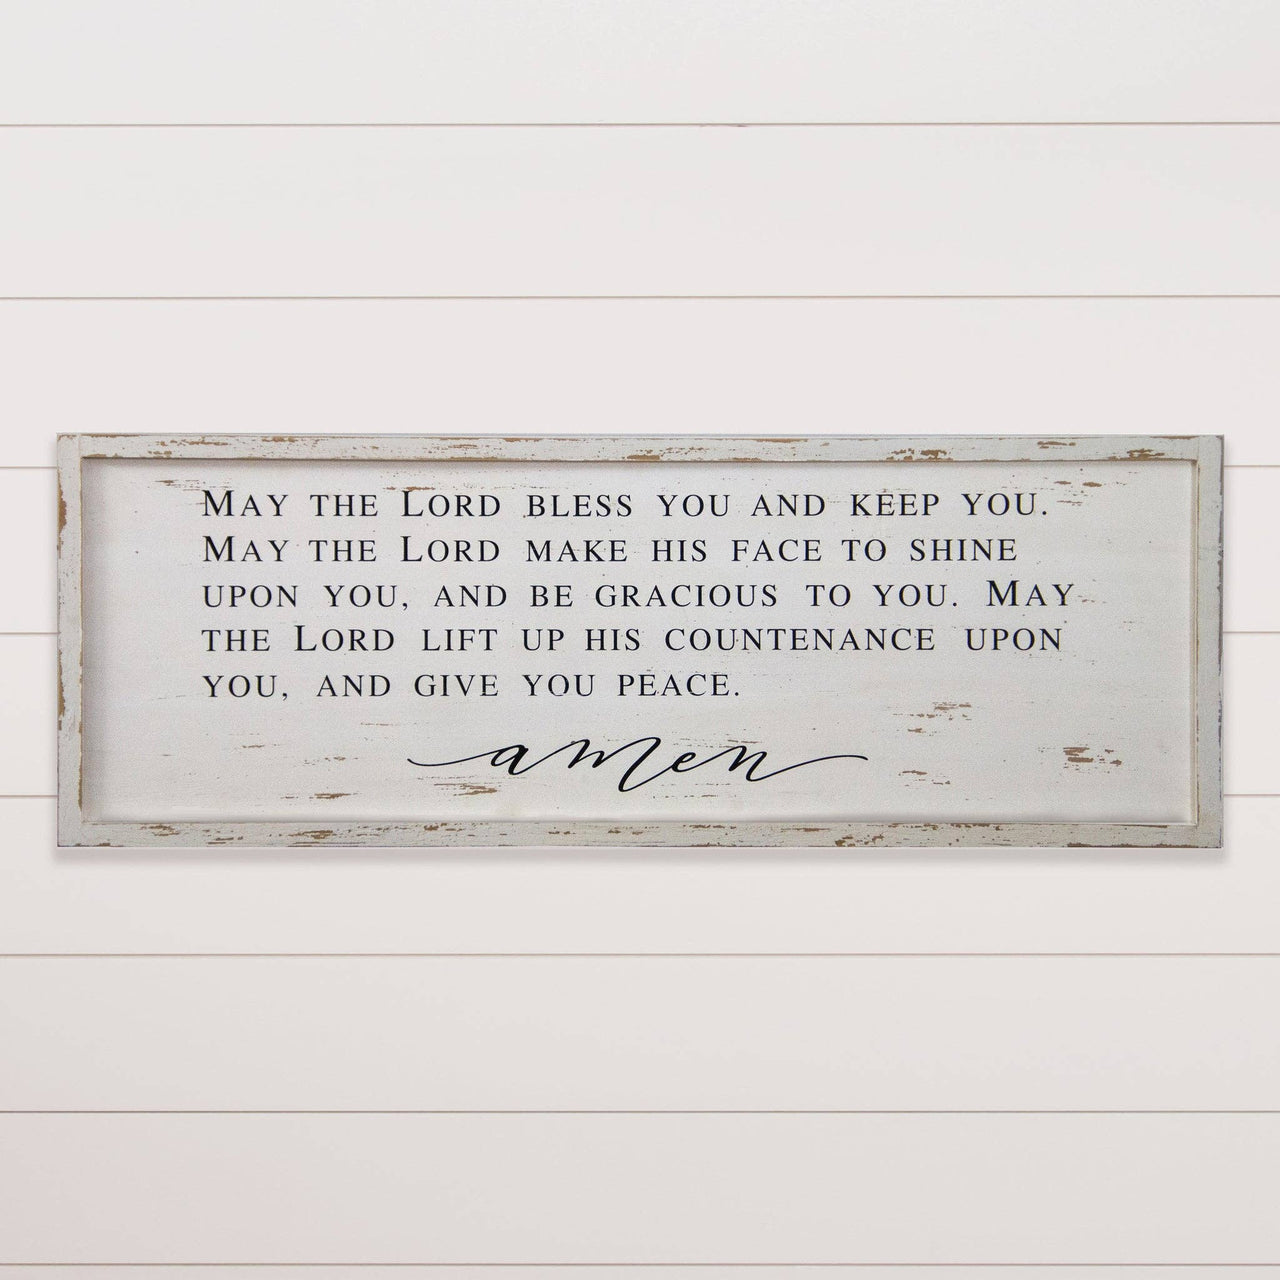 May the Lord bless you and keep you.
May the Lord make his face to shine
upon you, and be gracious to you. May
the Lord lift up his countenance upon
you, and give you peace.
amen